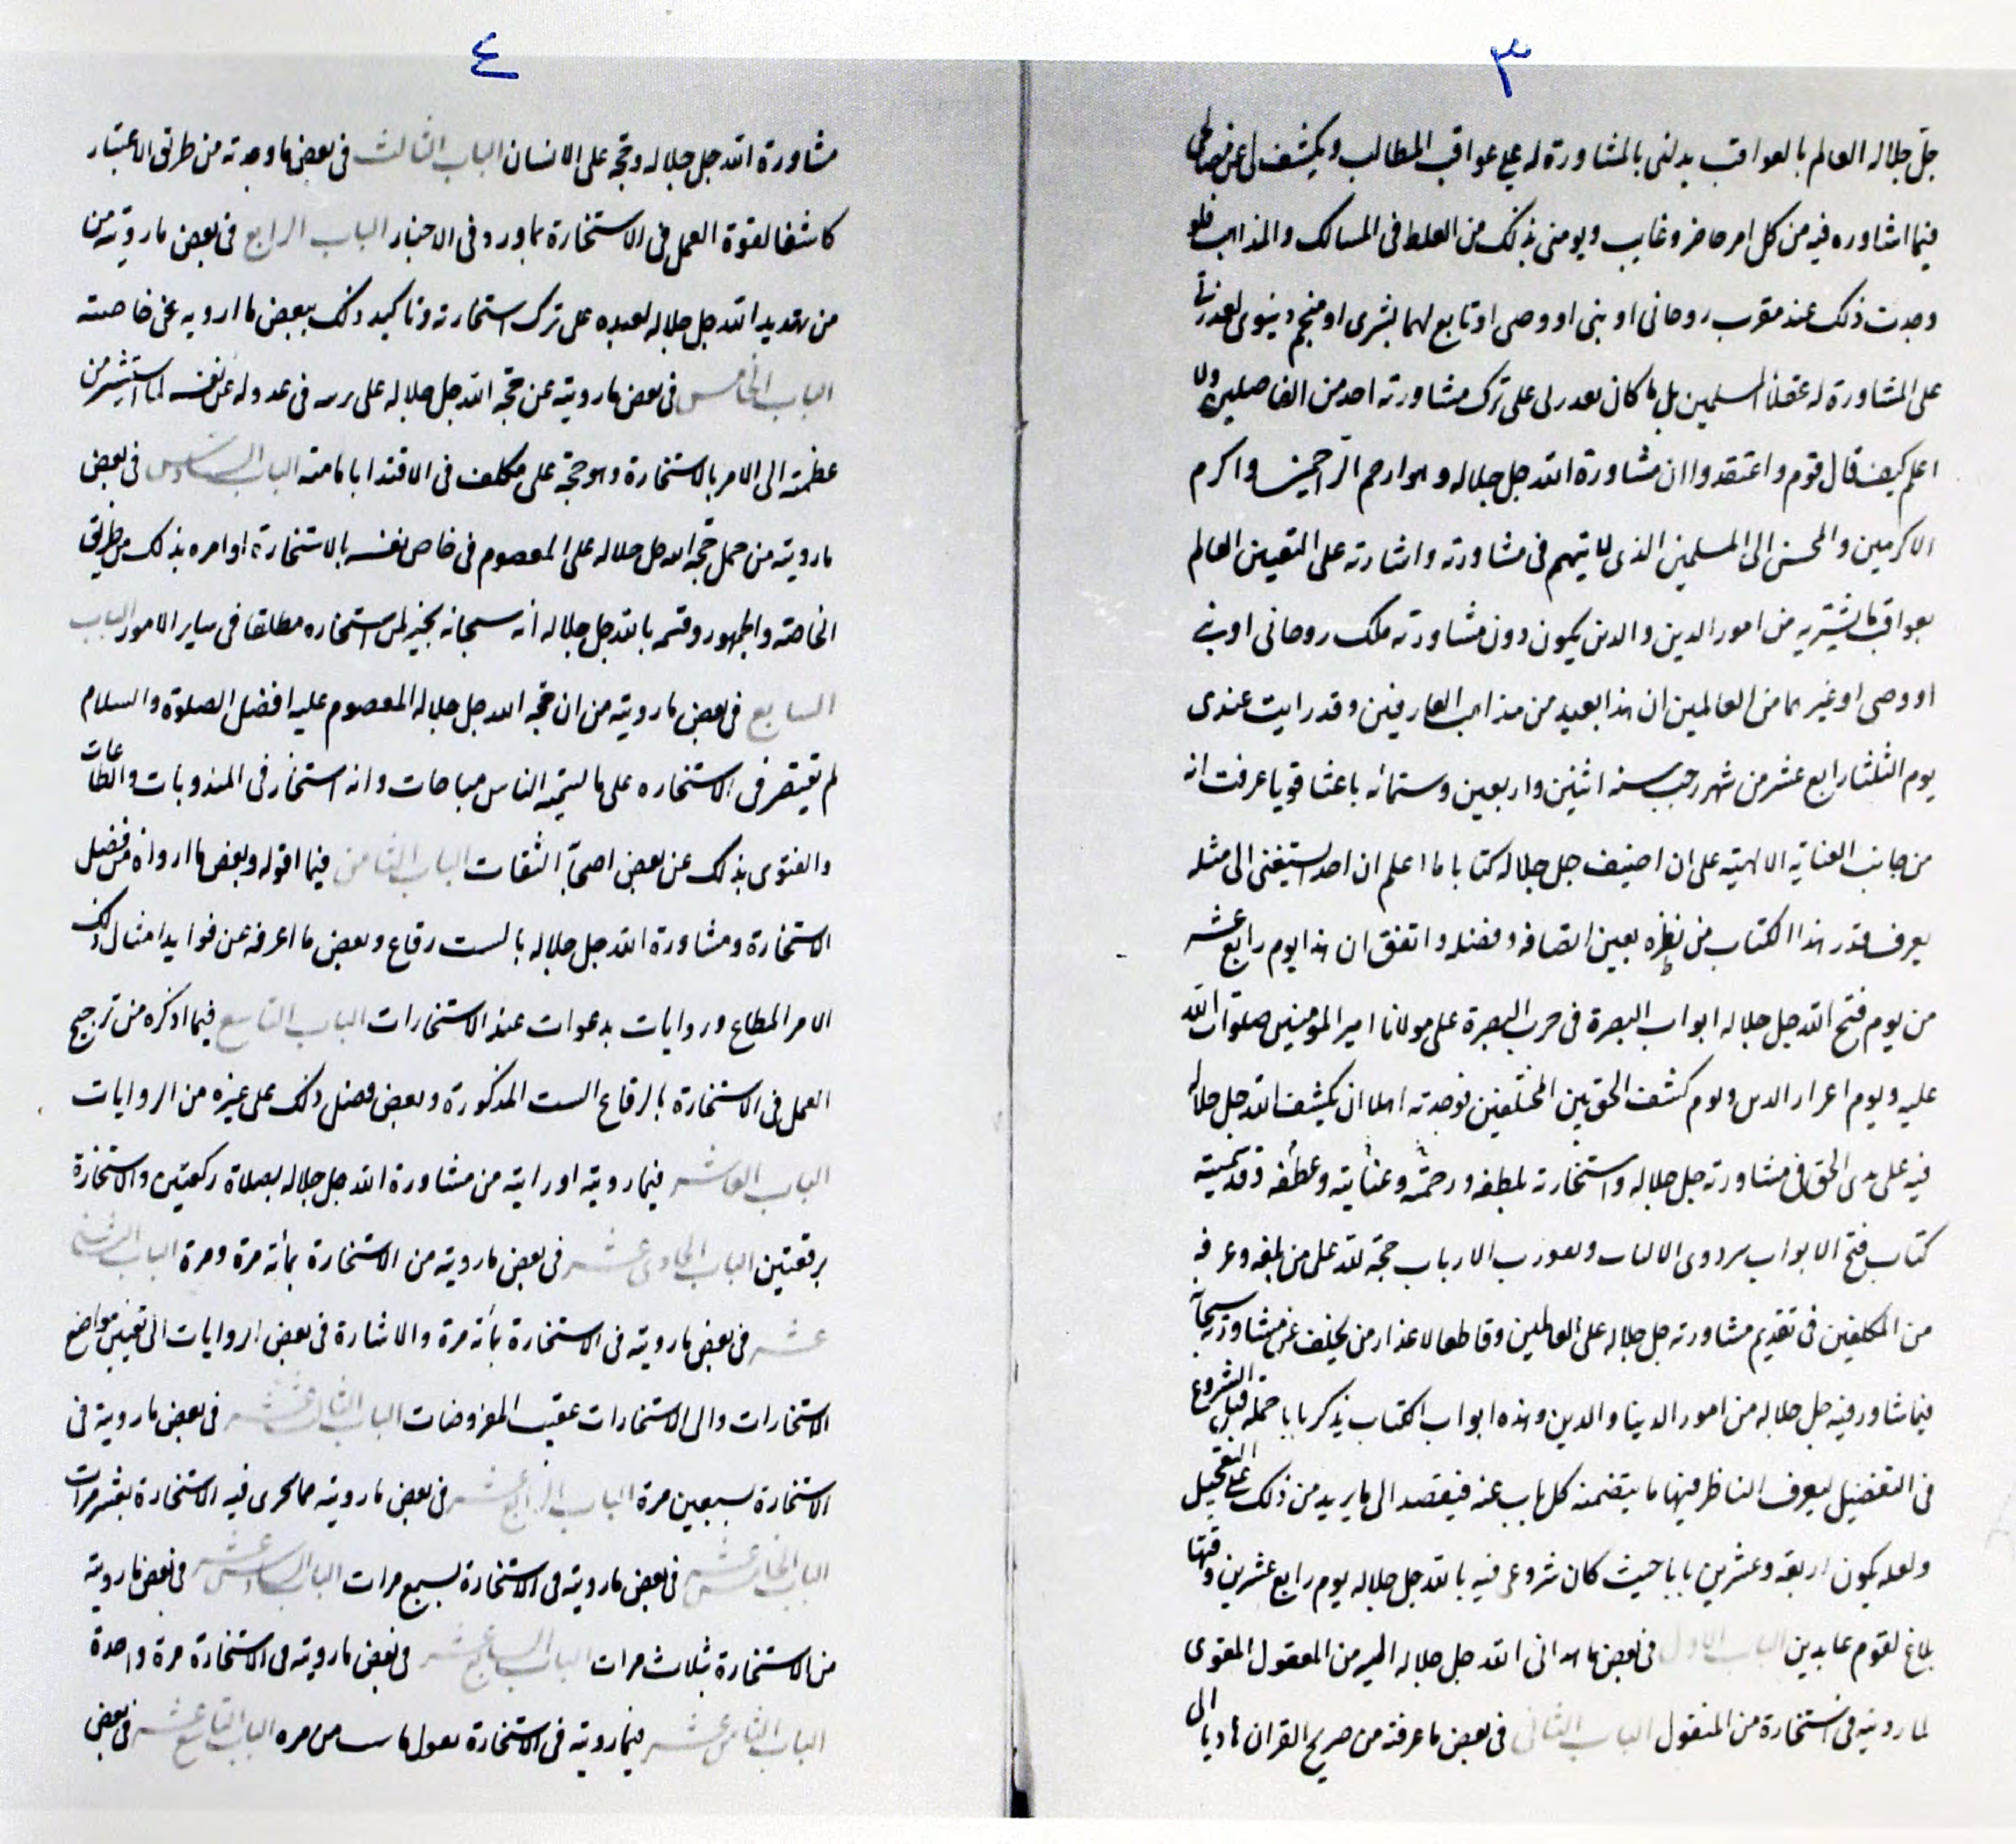 ٣
جل جلاله العالم بالعواقب يدلنى بالمشاورة له على عواقب المطالب ويكشف لى عن مصالحى
فيما اشاوره فيه من كل امر حاضر وغايب ويومنى بذلك من الغلط فى المسالك والمذاهب فلو
وجدت ذلك عند مقرب روحانى او نبى او وصى او تابع لهما بشرى او منجم دنيوى لعذرنى
على المشاورة له عقلاء المسلمين بل ما كان يعذرلى على ترك مشاورته احد من الفاضلين ولا
اعلم كيف قال قوم واعتقدوا ان مشاورة الله جل جلاله وهو ارحم الراحمين واكرم
الاكرمين والمحسن الى المسلمين الذى لا يتهم فى مشاورته واشارته على اليقين العالم
بعواقب ما يشير به من امور الدين والدين يكون دون مشاورته ملك روحانى او نبى
او وصى او غيرهما من العالمين ان هذا بعيد من مذاهب العارفين وقد رايت عندى
يوم الثلثا رابع عشر من شهر رجب سنه اثنين واربعين وستمائه باعثا قويا عرفت انه
من جانب العناية الالهية على ان اصنف جل جلاله كتابا ما اعلم ان احد يستغنى الى مثله
يعرف قدر هذا الكتاب من نظره بعين انصافه وفضله واتفق ان هذا يوم رابع عشر
من يوم فتح الله جل جلاله ابواب البصرة فى حرب البصرة على مولانا امير المومنين صلوات الله
عليه ويوم اعزار الدين ويوم كشف الحق بين المختلفين فوجدته اهلا ان يكشف الله جل جلاله
فيه على يدى الحق فى مشاورته جل جلاله واستخارته بلطفه ورحمته وعنايته وعطفه وقد سميته
كتاب فتح الابواب بين ذوى الالباب وبين رب الارباب حجة لله على من بلغه وعرفه
من المكلفين فى تقديم مشاورته جل جلاله على العالمين وقاطعا لاعذار من يخلف عن مشاورته سبحانه
فيما شاور فيه جل جلاله من امور الدينا والدين وهذه ابواب الكتاب نذكر بابا جملة قبل الشروع
فى التفضيل ليعرف الناظر فيها ما يتضمنه كل باب عنه فيقصد الى ما يريد من ذلك على التعجيل
ولعله يكون اربعة وعشرين بابا حيث كان شروعى فيه بالله جل جلاله يوم رابع عشرين وفيها
بلاغ لقوم عابدين الباب الاول فى بعض ما هدانى الله جل جلاله اليه من المعقول المقوى
لما رويته فى استخارة من المنقول الباب الثانى فى بعض ما عرفته من صريح القران هاديا الى
٤
مشاورة الله جل جلاله وحجة على الانسان الباب الثالث فى بعض ما وجدته من طريق الاعتبار
كاشفا لقوة العمل فى الاستخارة بما ورد فى الاخبار الباب الرابع فى بعض ما رويته من
من تهديد الله جل جلاله لعبده على ترك استخارته وتاكيد ذلك ببعض ما ارويه عن خاصته
الباب الخامس فى بعض ما رويته عن حجة الله جل جلاله على بريته فى عدوله عن نفسه لما استشير من
عظمته الى الامر بالاستخارة وهو حجة على مكلف فى الاقتدا بامامته الباب السادس فى بعض
ما رويته من عمل حجة الله جل جلاله على المعصوم فى خاص نفسه بالاستخارة او امره بذلك من طريق
الخاصة والجمهور وقسمه بالله جل جلاله انه سبحانه يخير لمن استخاره مطلقا فى ساير الامور الباب
السابع فى بعض ما رويته من ان حجة الله جل جلاله المعصوم عليه افضل الصلوة والسلام
لم يقتصر فى الاستخاره على ما يسميه الناس مباحات وانه استخار فى المندوبات والطاعات
والفتوى بذلك عن بعض اصحابنا الثقات الباب الثامن فيما اقوله وبعض ما ارواه من فضل
الاستخارة ومشاورة الله جل جلاله بالست رقاع وبعض ما اعرفه من فوايد امثال ذلك
الامر المطاع وروايات بدعوات عند الاستخارات الباب التاسع فيما اذكره من ترجيح
العمل فى الاستخارة بالرقاع الست المذكورة وبعض فضل ذلك على غيره من الروايات
الباب العاشر فيما رويته او رايته من مشاورة الله جل جلاله بصلاة ركعتين والاستخارة
برقعتين الباب الحادى عشر فى بعض ما رويته من الاستخارة بمأته مرة ومرة الباب الثانى
عشر فى بعض ما رويته فى الاستخارة بمأته مرة والاشارة فى بعض الروايات الى تعيين مواضع
الاستخارات والى الاستخارات عقيب المفروضات الباب الثالث عشر فى بعض ما رويته فى
الاستخارة بسبعين مرة الباب الرابع عشر فى بعض ما رويته مما يجرى فيه الاستخارة بعشر مرات
الباب الخامس عشر فى بعض ما رويته فى الاستخارة بسبع مرات الباب السادس عشر فى بعض ما رويته
من الاستخارة بثلاث مرات الباب السابع عشر فى بعض ما رويته فى الاستخارة مرة واحدة
الباب الثامن عشر فيما رويته فى الاستخارة بقول ما من مره الباب التاسع عشر فى بعض